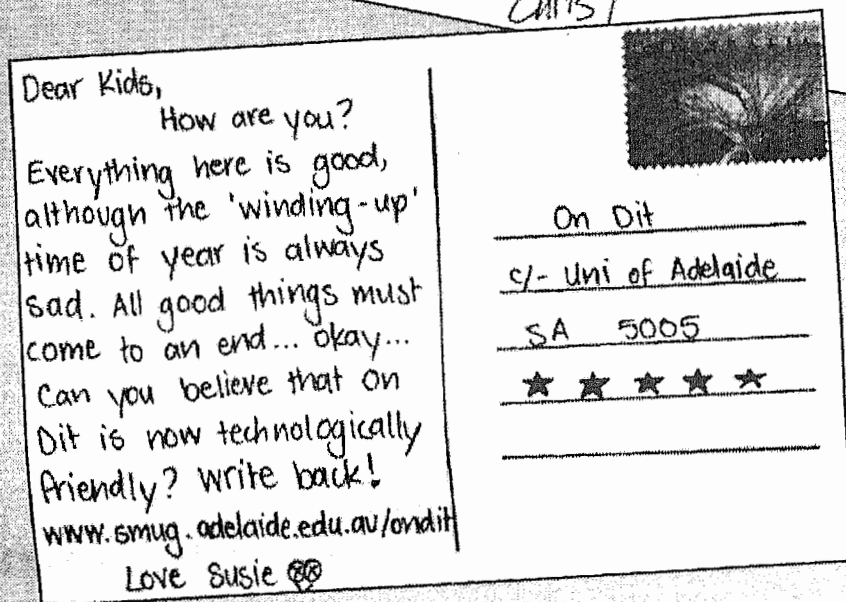 Chris
Dear Kids,
How are you?
Everything here is good,
although the 'winding-up'
time of year is always
sad. All good things must
come to an end... okay...
Can you believe that On
Dit is now technologically
friendly? Write back!
www.smug.adelaide.edu.au/ondit
Love Susie
On Dit
c/- Uni of Adelaide
SA 5005